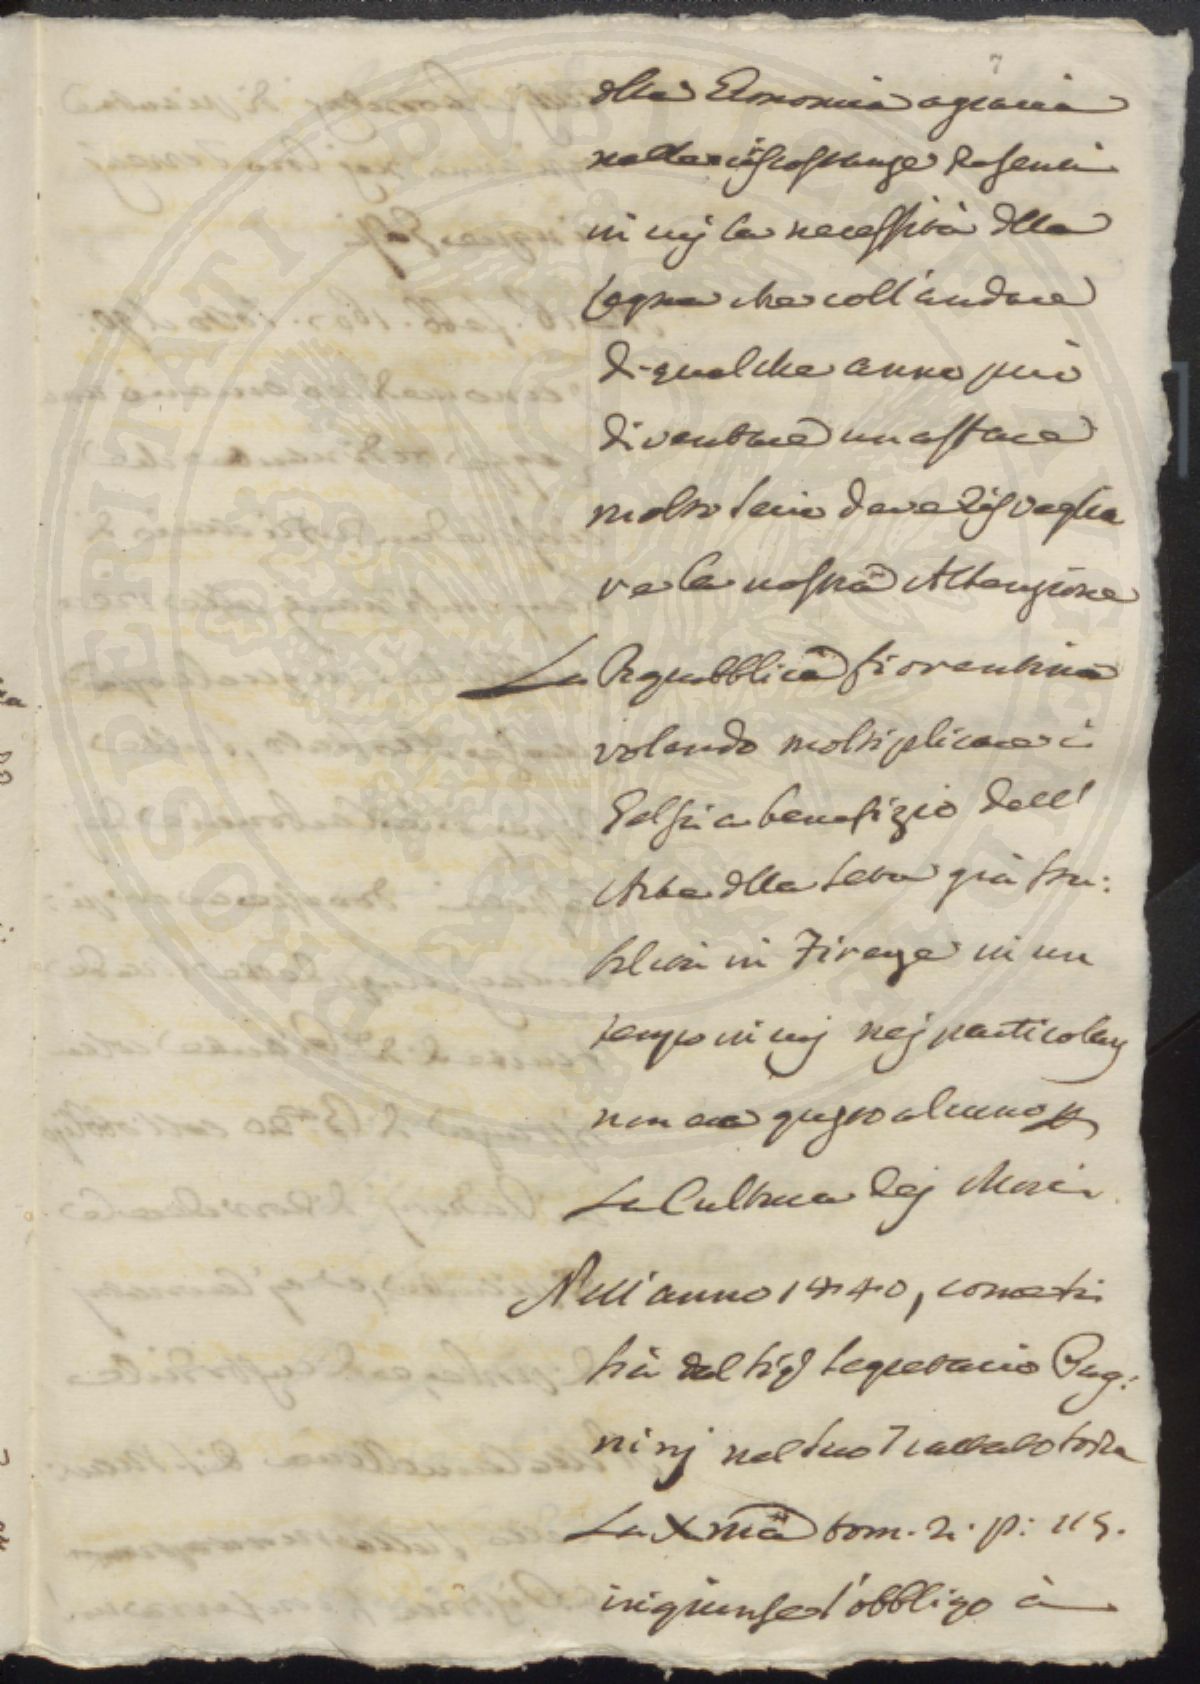 7
della Economia agraria
nelle circostanze presenti
in cuj la necessità della
legna che coll'andare
di qualche anno può
diventare un affare
molto serio deve risveglia
re la nostra Attenzione
La Repubblica fiorentina
volendo moltiplicare i
Gelsi a benefizio dell'
Arte della seta già sta:
bilita in Firenze in un
tempo in cuj nej particolarj
non era gusto alcuno p
La Cultura dej Mori
Nell'anno 1440, come ti
trà dal Sig Segretario Pag:
ninj nel suo Trattato sopra
La Xma tom. 2. p: 115.
ingiunse l'obbligo à
PROSPERITATI PUBLICAE AUGENDAE